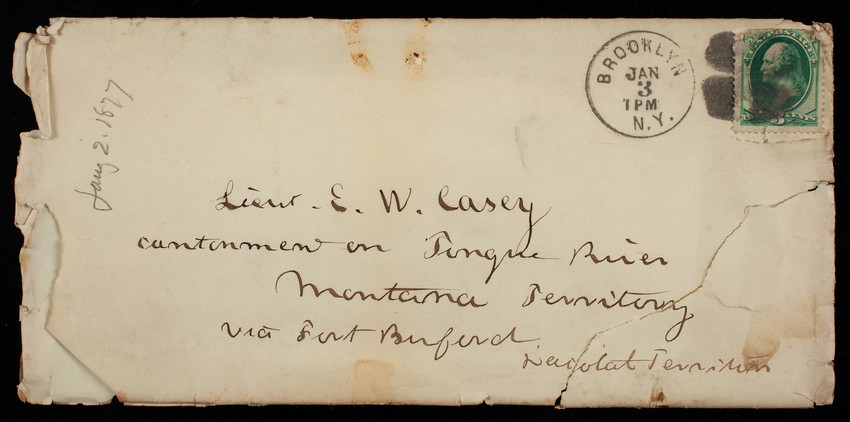 BROOKLYN
JAN
3
1 PM
N.Y.
Jany 2. 1877
Lieut. E. W. Casey
cantonment on Tongue River
Montana Territory
via Fort Buford
Dacotah Territory